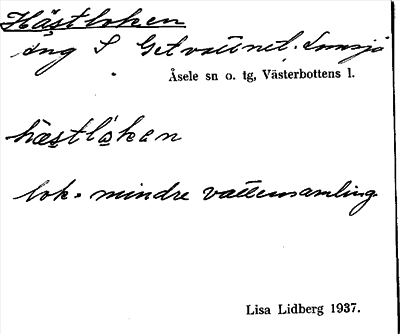 Hästloken
äng S Getvattnet. Lomsjö
Åsele sn o. tg, Västerbottens l.
hästlåken
lok = mindre vattensamling
Lisa Lidberg 1937.